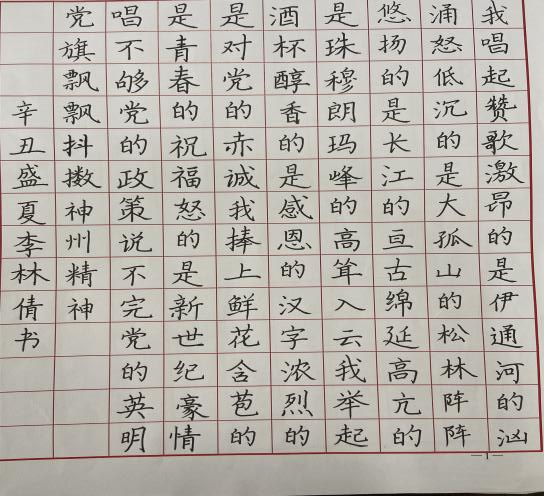 我唱起赞歌激昂的是伊通河的汹
涌怒低沉的是大孤山的松林阵阵
悠扬的是长江的亘古绵延高亢的
是珠穆朗玛峰的高耸入云我举起
酒杯醇香的是感恩的汉字浓烈的
是对党的赤诚我捧上鲜花含苞的
是青春的祝福怒的是新世纪豪情
唱不够党的政策说不完党的英明
党旗飘飘抖擞神州精神
辛丑盛夏李林倩书
一1一